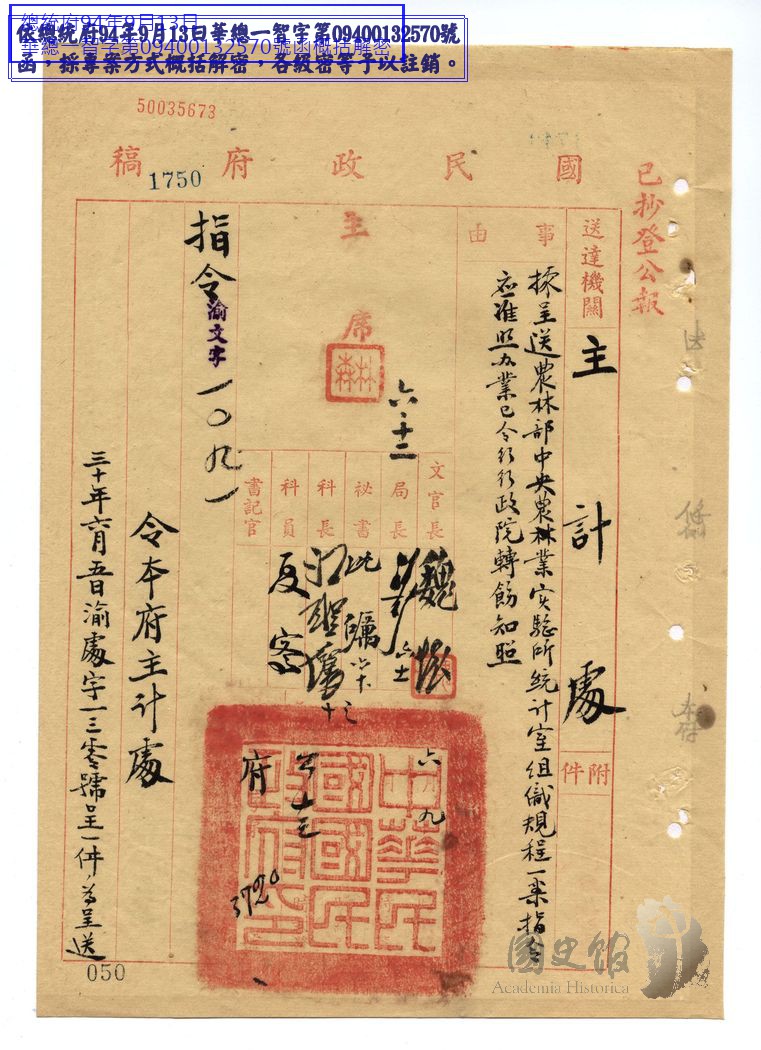 總統府94年9月13日
華總一智字第09400132570號函概括解密
依總統府94年9月13日華總一智字第09400132570號
函，採專案方式概括解密，各級密等予以註銷。
50035673
國民政府稿
1750
已抄登公報
送達機關
主計處
附件
事由
據呈送農林部中央農林業实驗所統計室組織規程一案指令
应准照办業已令行行政院轉飭知照
主席
六、十二
文官長
局長
秘書
科長
科員
書記官
魏怀
六
九
府
3790
中華民國國民政府印
指令
渝文字
一〇九一
令本府主計處
三十年六月五日渝處字一三零號呈一件，為呈送
050
國史館
Academia Historica